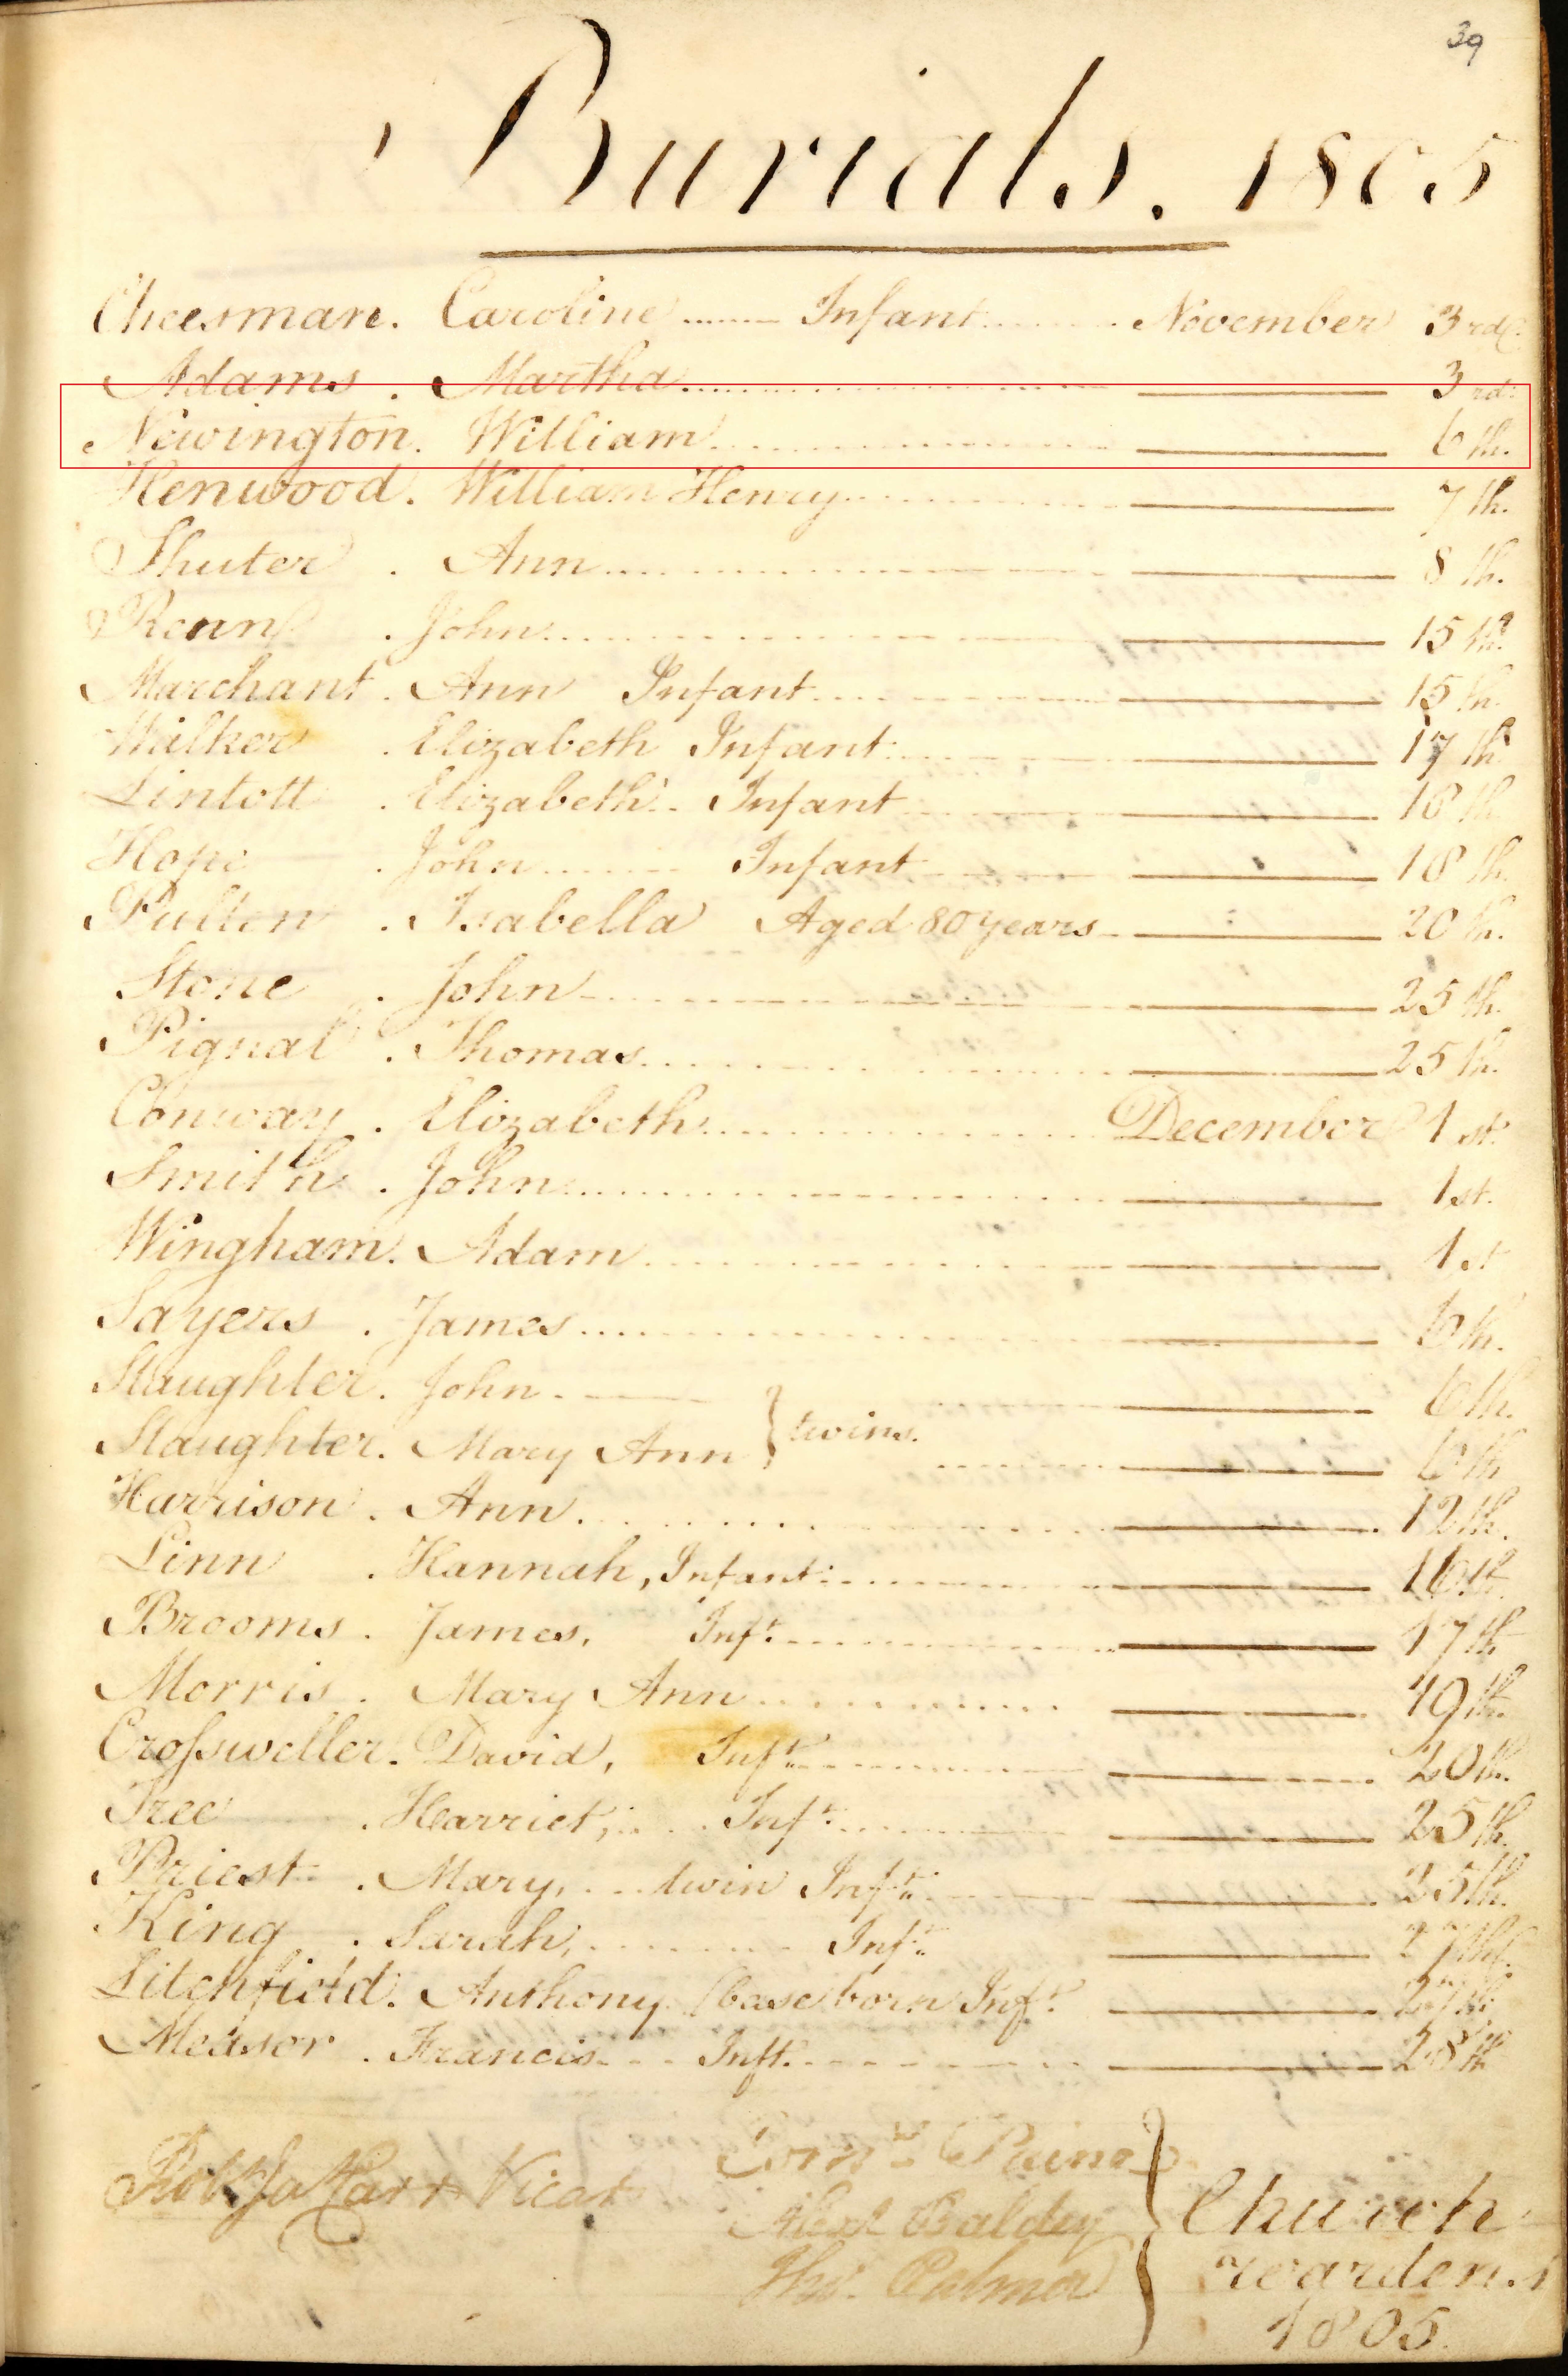 39
Burials. 1805
Cheesman. Caroline ........ Infant ........ November 3rd.
Adams. Martha ........ ——— 3rd.
Newington. William ........ ——— 6th.
Henwood. William Henry ........ ——— 7th.
Shuter. Ann ........ ——— 8th.
Renn. John ........ ——— 15th.
Marchant. Ann Infant ........ ——— 15th.
Walker. Elizabeth Infant ........ ——— 17th.
Lintott. Elizabeth. Infant ........ ——— 18th.
Hope. John ........ Infant ——— 18th.
Pullen. Isabella Aged 80 years ——— 20th.
Stone. John ........ ——— 25th.
Pignal. Thomas ........ ——— 25th.
Conway. Elizabeth ........ December 1st.
Smith. John ........ ——— 1st.
Wingham. Adam ........ ——— 1st
Sayers. James ........ ——— 6th.
Slaughter. John ———
} twins. ........ ——— 6th.
Slaughter. Mary Ann ........ ——— 6th
Harrison. Ann ........ ——— 12th.
Linn. Hannah, Infant ........ ——— 16th.
Brooms. James, Inft. ........ ——— 17th
Morris. Mary Ann ........ ——— 19th.
Crofsweller. David, Inft. ........ ——— 20th.
Tree. Harriet, .... Inft. ........ ——— 25th.
Priest. Mary, .... twin Inft. ——— 25th.
King. Sarah, ........ Inft. ——— 27th.
Litchfield. Anthony (base born Inft. ——— 27th.
Measor. Francis ... Inft. ........ ——— 28th
Robt. Ja Carr Vicar
Corns. Paine
Alexr Baldey
Thos. Palmer
} Church
wardens
1805.